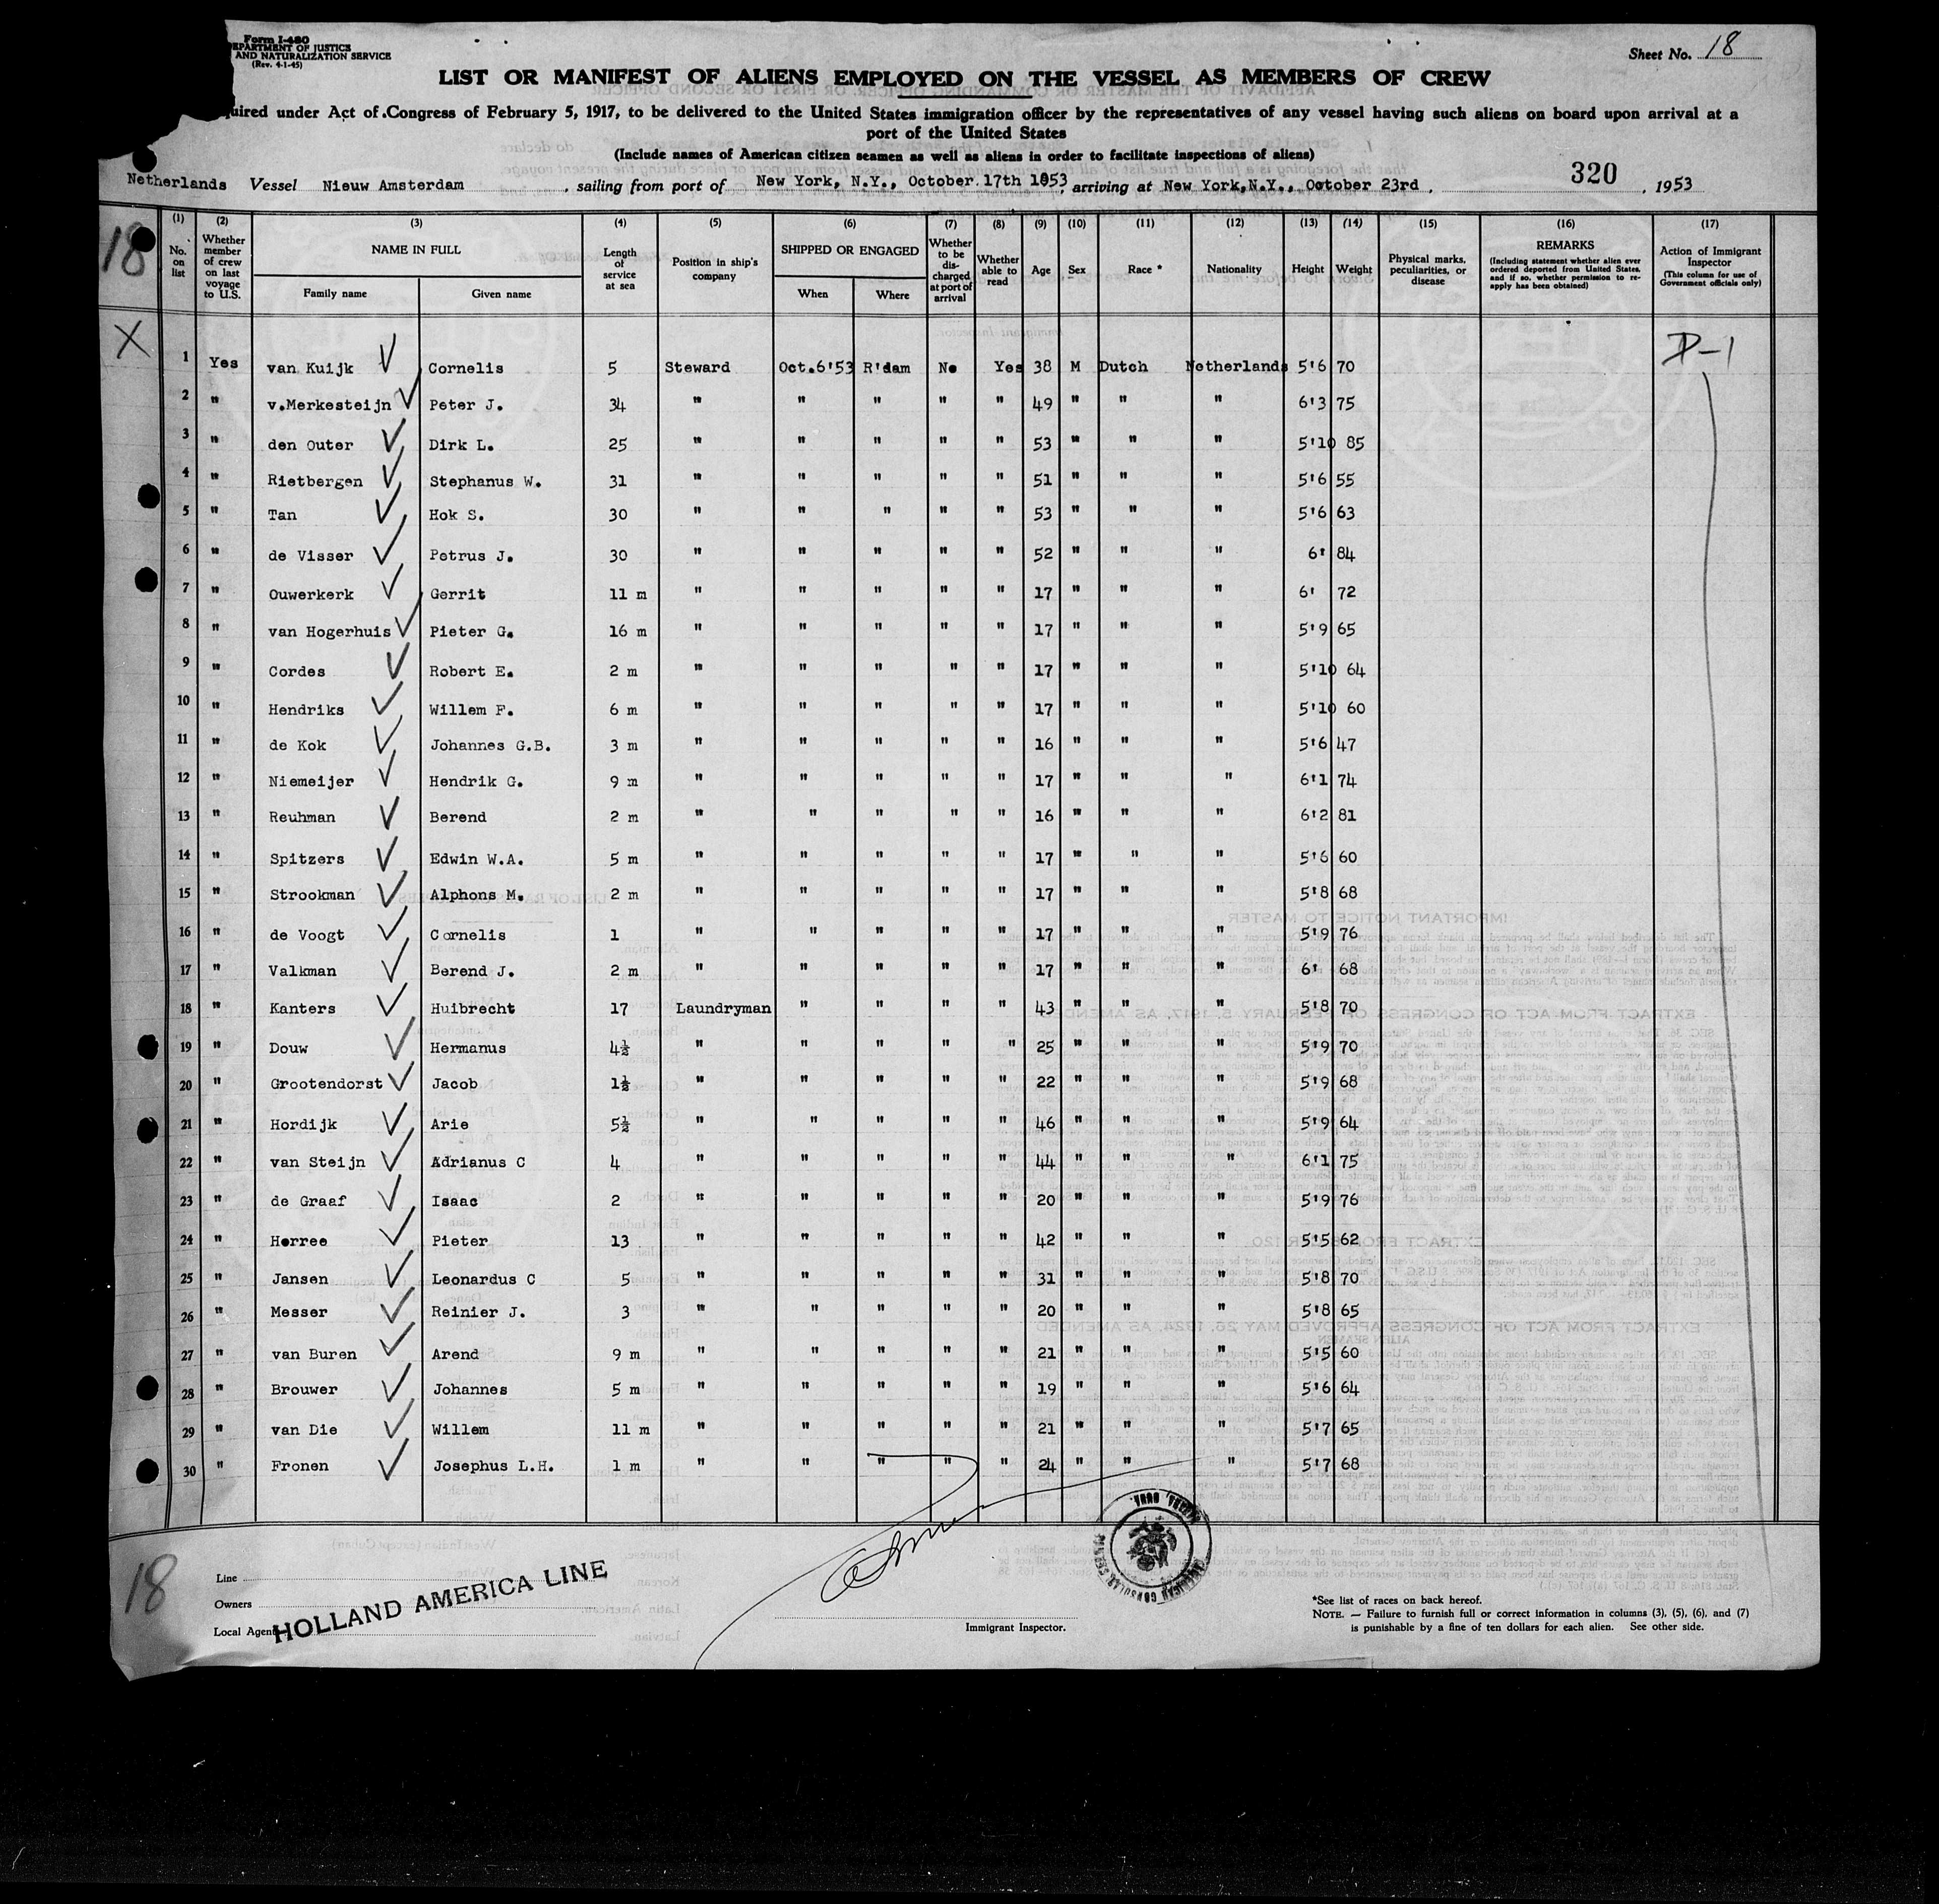 Form I-480
EPARTMENT OF JUSTICE
AND NATURALIZATION SERVICE
(Rev. 4-1-45)
Sheet No. 18
LIST OR MANIFEST OF ALIENS EMPLOYED ON THE VESSEL AS MEMBERS OF CREW
quired under Act of Congress of February 5, 1917, to be delivered to the United States immigration officer by the representatives of any vessel having such aliens on board upon arrival at a
port of the United States
(Include names of American citizen seamen as well as aliens in order to facilitate inspections of aliens)
320
Netherlands Vessel Nieuw Amsterdam, sailing from port of New York, N.Y., October 17th 1953, arriving at New York,N.Y., October 23rd, 1953
18
(1) (2) (3) (4) (5) (6) (7) (8) (9) (10) (11) (12) (13) (14) (15) (16) (17)
No. on list
Whether member of crew on last voyage to U.S.
NAME IN FULL
Family name
Given name
Length of service at sea
Position in ship's company
SHIPPED OR ENGAGED
When
Where
Whether to be discharged at port of arrival
Whether able to read
Age
Sex
Race *
Nationality
Height
Weight
Physical marks, peculiarities, or disease
REMARKS
(Including statement whether alien ever ordered deported from United States, and if so, whether permission to re-apply has been obtained)
Action of Immigrant Inspector
(This column for use of Government officials only)
X
D-1
1 Yes van Kuijk Cornelis 5 Steward Oct.6'53 R'dam No Yes 38 M Dutch Netherlands 5'6 70
2 " v.Merkesteijn Peter J. 34 " " " " " 49 " " " 6'3 75
3 " den Outer Dirk L. 25 " " " " " 53 " " " 5'10 85
4 " Rietbergen Stephanus W. 31 " " " " " 51 " " " 5'6 55
5 " Tan Hok S. 30 " " " " " 53 " " " 5'6 63
6 " de Visser Petrus J. 30 " " " " " 52 " " " 6' 84
7 " Ouwerkerk Gerrit 11 m " " " " " 17 " " " 6' 72
8 " van Hogerhuis Pieter G. 16 m " " " " " 17 " " " 5'9 65
9 " Cordes Robert E. 2 m " " " " " 17 " " " 5'10 64
10 " Hendriks Willem F. 6 m " " " " " 17 " " " 5'10 60
11 " de Kok Johannes G.B. 3 m " " " " " 16 " " " 5'6 47
12 " Niemeijer Hendrik G. 9 m " " " " " 17 " " " 6'1 74
13 " Reuhman Berend 2 m " " " " " 16 " " " 6'2 81
14 " Spitzers Edwin W.A. 5 m " " " " " 17 " " " 5'6 60
15 " Strookman Alphons M. 2 m " " " " " 17 " " " 5'8 68
16 " de Voogt Cornelis 1 " " " " " 17 " " " 5'9 76
17 " Valkman Berend J. 2 m " " " " " 17 " " " 6' 68
18 " Kanters Huibrecht 17 Laundryman " " " " 43 " " " 5'8 70
19 " Douw Hermanus 4½ " " " " " 25 " " " 5'9 70
20 " Grootendorst Jacob 1½ " " " " " 22 " " " 5'9 68
21 " Hordijk Arie 5½ " " " " " 46 " " " 5'9 64
22 " van Steijn Adrianus C 4 " " " " " 44 " " " 6'1 75
23 " de Graaf Isaac 2 " " " " " 20 " " " 5'9 76
24 " Herree Pieter 13 " " " " " 42 " " " 5'5 62
25 " Jansen Leonardus C 5 " " " " " 31 " " " 5'8 70
26 " Messer Reinier J. 3 " " " " " 20 " " " 5'8 65
27 " van Buren Arend 9 m " " " " " 21 " " " 5'5 60
28 " Brouwer Johannes 5 m " " " " " 19 " " " 5'6 64
29 " van Die Willem 11 m " " " " " 21 " " " 5'7 65
30 " Fronen Josephus L.H. 1 m " " " " " 24 " " " 5'7 68
18
Line
Owners
Local Agent
HOLLAND AMERICA LINE
Immigrant Inspector.
AMERICAN CONSULAR SERVICE
*See list of races on back hereof.
NOTE. — Failure to furnish full or correct information in columns (3), (5), (6), and (7)
is punishable by a fine of ten dollars for each alien. See other side.